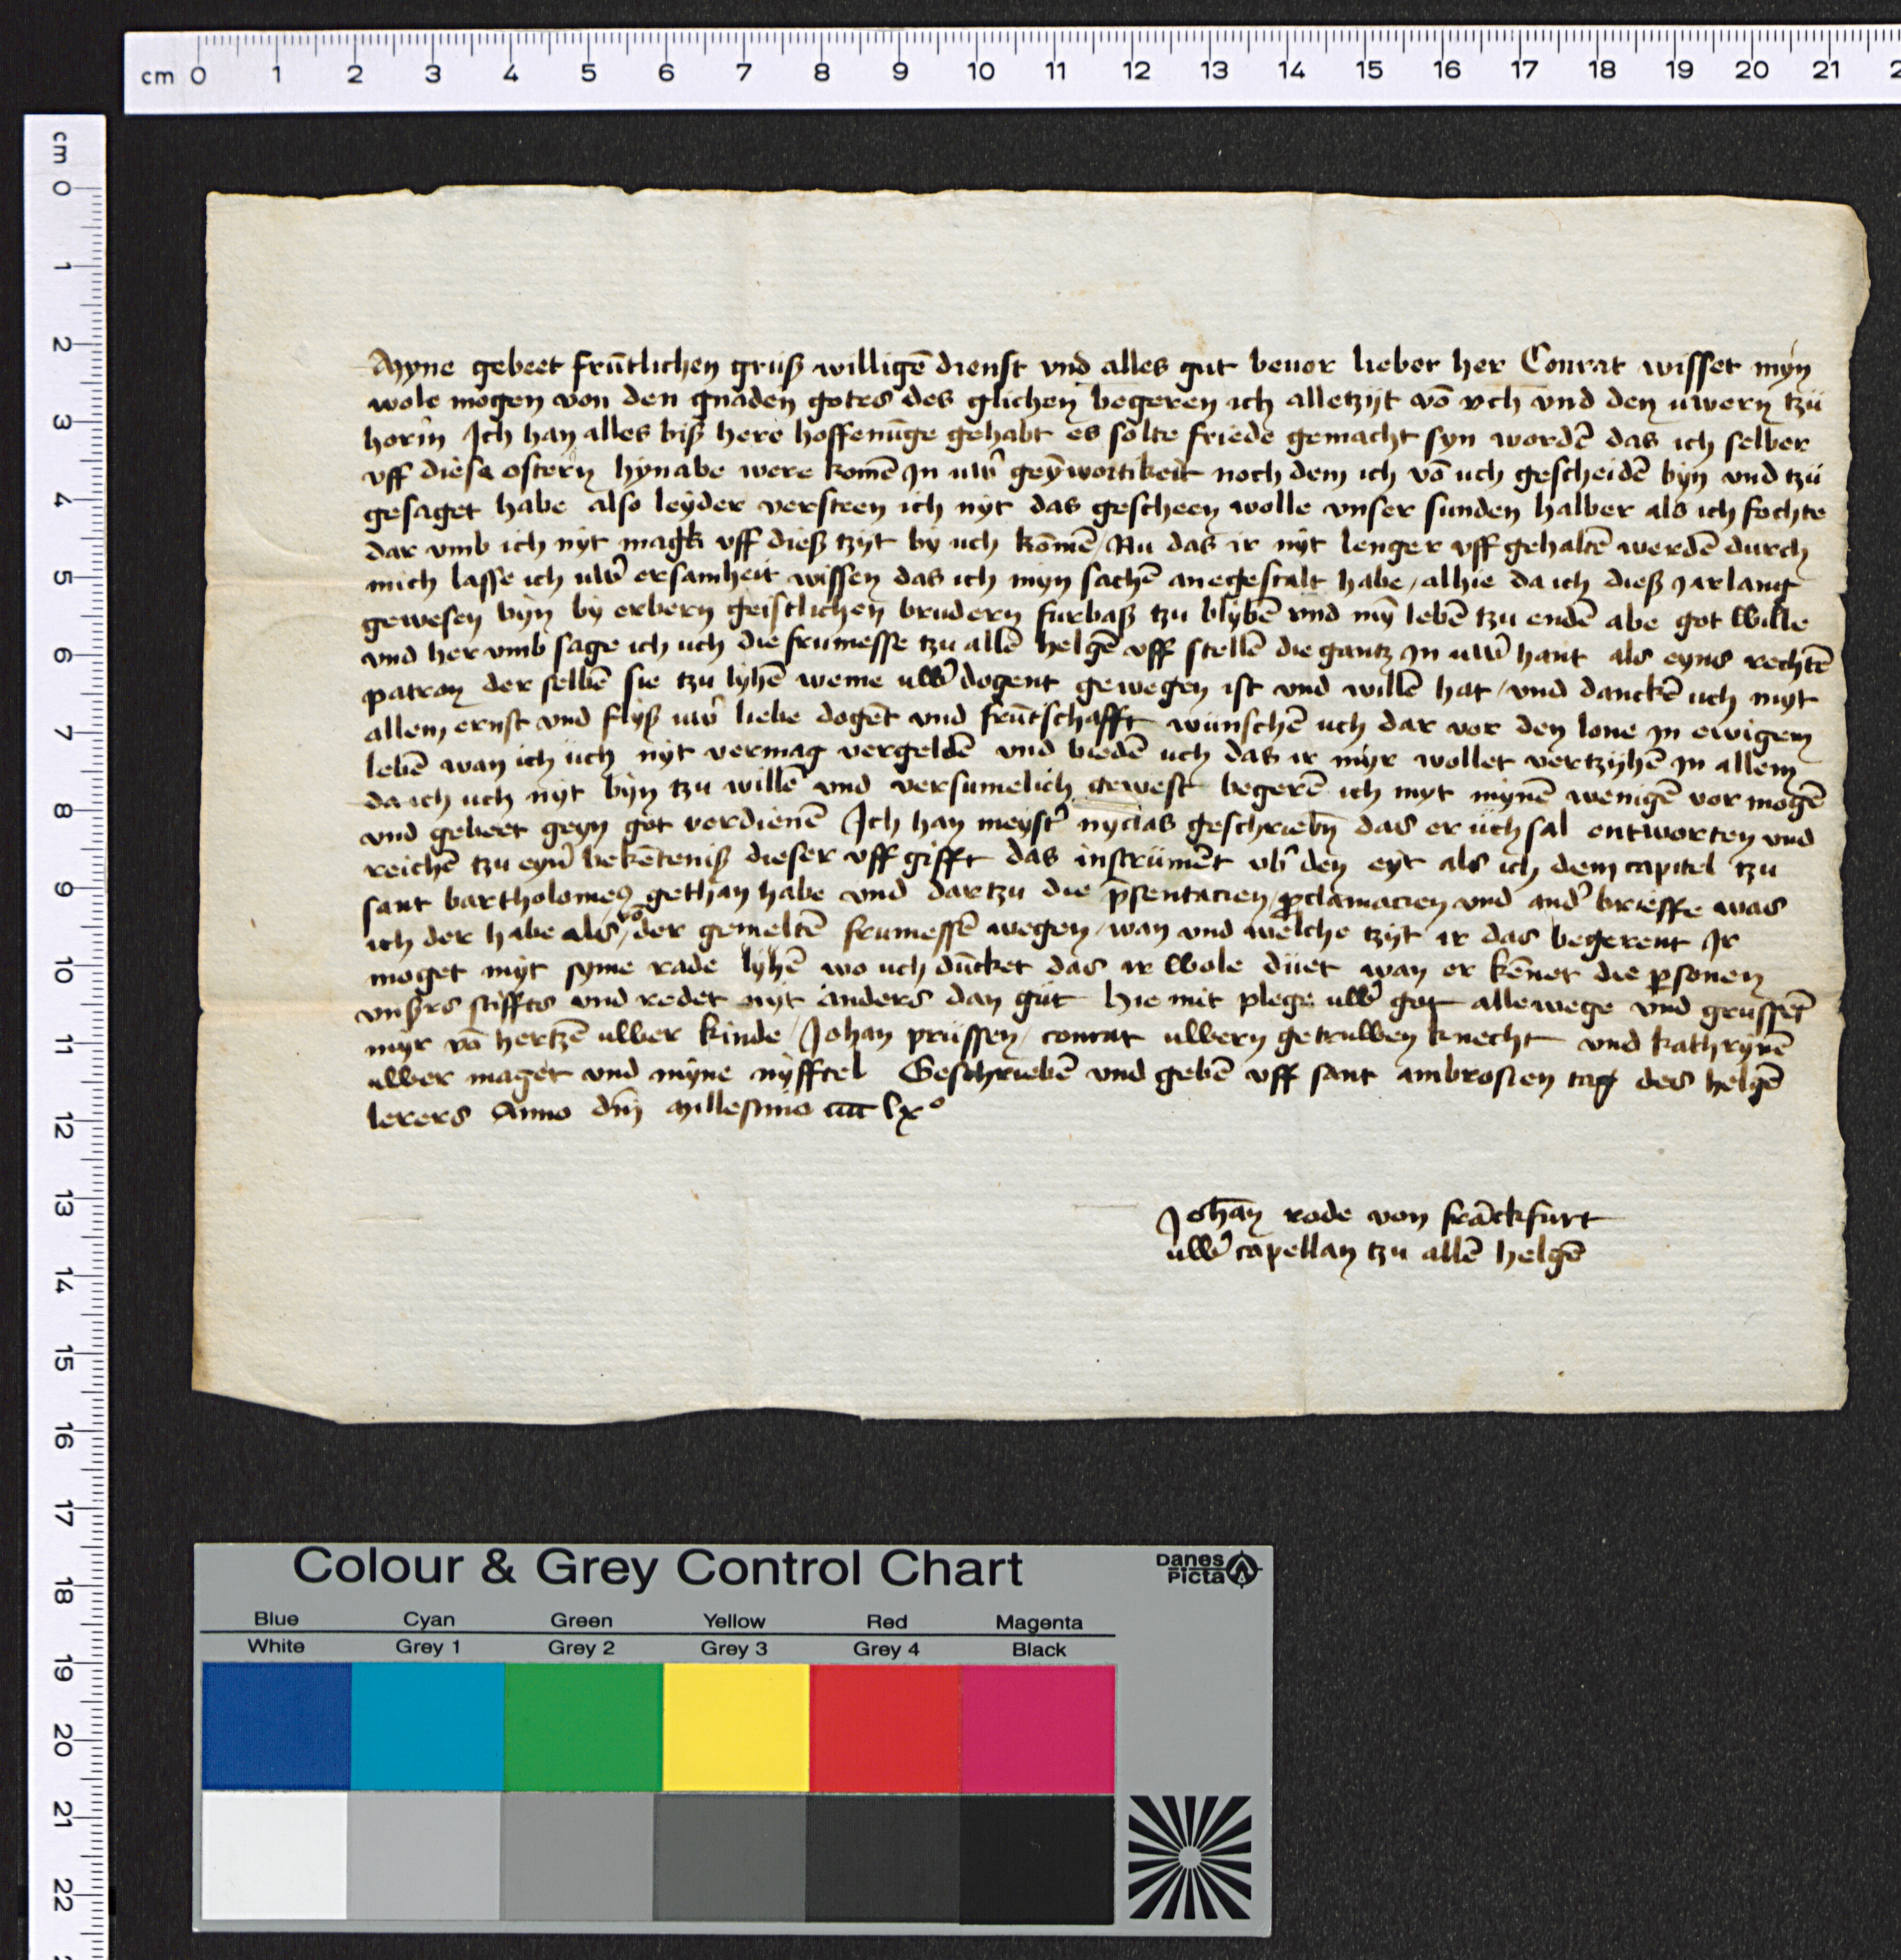 cm 0 1 2 3 4 5 6 7 8 9 10 11 12 13 14 15 16 17 18 19 20 21 2
cm 0 1 2 3 4 5 6 7 8 9 10 11 12 13 14 15 16 17 18 19 20 21 22
Myne gebeet frūtlichen grüß willigē dienst vnd alles gut beuor lieber her Conrat wisset myn
wole mogen von den gnaden gotes des glichen begeren ich alletzijt vō vch vnd den uwern tzü
horin Ich han alles biß here hoffenūge gehabt es solte friede gemacht syn wordē das ich selber
vff diese ostern hynabe were komē In uwˀ geȳwortikeit noch dem ich vō uch gescheidē byn vnd tzü
gesaget habe also leyder versteen ich nyt das gescheen wolle vnser sunden halber als ich fochte
dar vmb ich nyt magk vff dieß tzyt by uch komē / Nu das ir nyt lenger vff gehaltē werdē durch
mich lasse ich uwˀ ersamheit wissen das ich myn sachē anegestalt habe / alhie da ich dieß Jarlang
gewesen byn by erbern geistlichen brudern furbaß tzu blybē vnd mȳ lebē tzu endē abe got wille
vnd her vmb sage ich uch die frumesse tzu allē helgē vff stellē die gantz In uwˀ hant als eyns rechtē
patron der selbē sie tzu lyhē weme uwˀ dogent gewegen ist vnd willē hat / vnd danckē uch myt
allem ernst vnd flyß uwˀ liebe dogēt vnd frūtschafft wünschē uch dar vor den lone In ewigem
lebē wan ich üch nyt vermag vergeldē vnd biedē uch das ir myr wollet vertzyhē In allem
da ich uch nyt byn tzu willē vnd versumelich gewest begerē ich myt mynē wenigē vor mogē
vnd gebeet geyn got verdienē Ich han meystˀ nyclas geschriebn̄ das er üch sal entworten vnd
reichē tzu eynˀ bekēteniß dieser vff gifft das instrümēt vbˀ den eyt als ich dem capitel tzu
sant bartholomeꝯ gethan habe vnd dartzu die p̄sentacien / ꝓclamacien vnd andˀ brieffe was
ich der habe als / vō der gemeltē frumessē wegen / wan vnd welche tzijt ir das begerent Ir
moget myt syme rade lyhē wo uch dūcket das ir wole düet wan er kēnet die ꝑsonen
vnsers stiffts vnd redet nyt anders dan güt Hie mit plege uwˀ got allewege vnd grussēt
myr vō hertzē uwer kinde / Johan prüssen / conrat uwern getruwen knecht vnd kathrynē
uwer maget vnd myne nyfftel Geschriebē vnd gebē vff sant ambrosien tag des helgē
lerers Anno dn̄i Millesimo cccc lxº
Johan̄ rode von frāckfurt
uwˀ capellan tzu allē helgē
Colour & Grey Control Chart
Danes
Picta
Blue Cyan Green Yellow Red Magenta
White Grey 1 Grey 2 Grey 3 Grey 4 Black